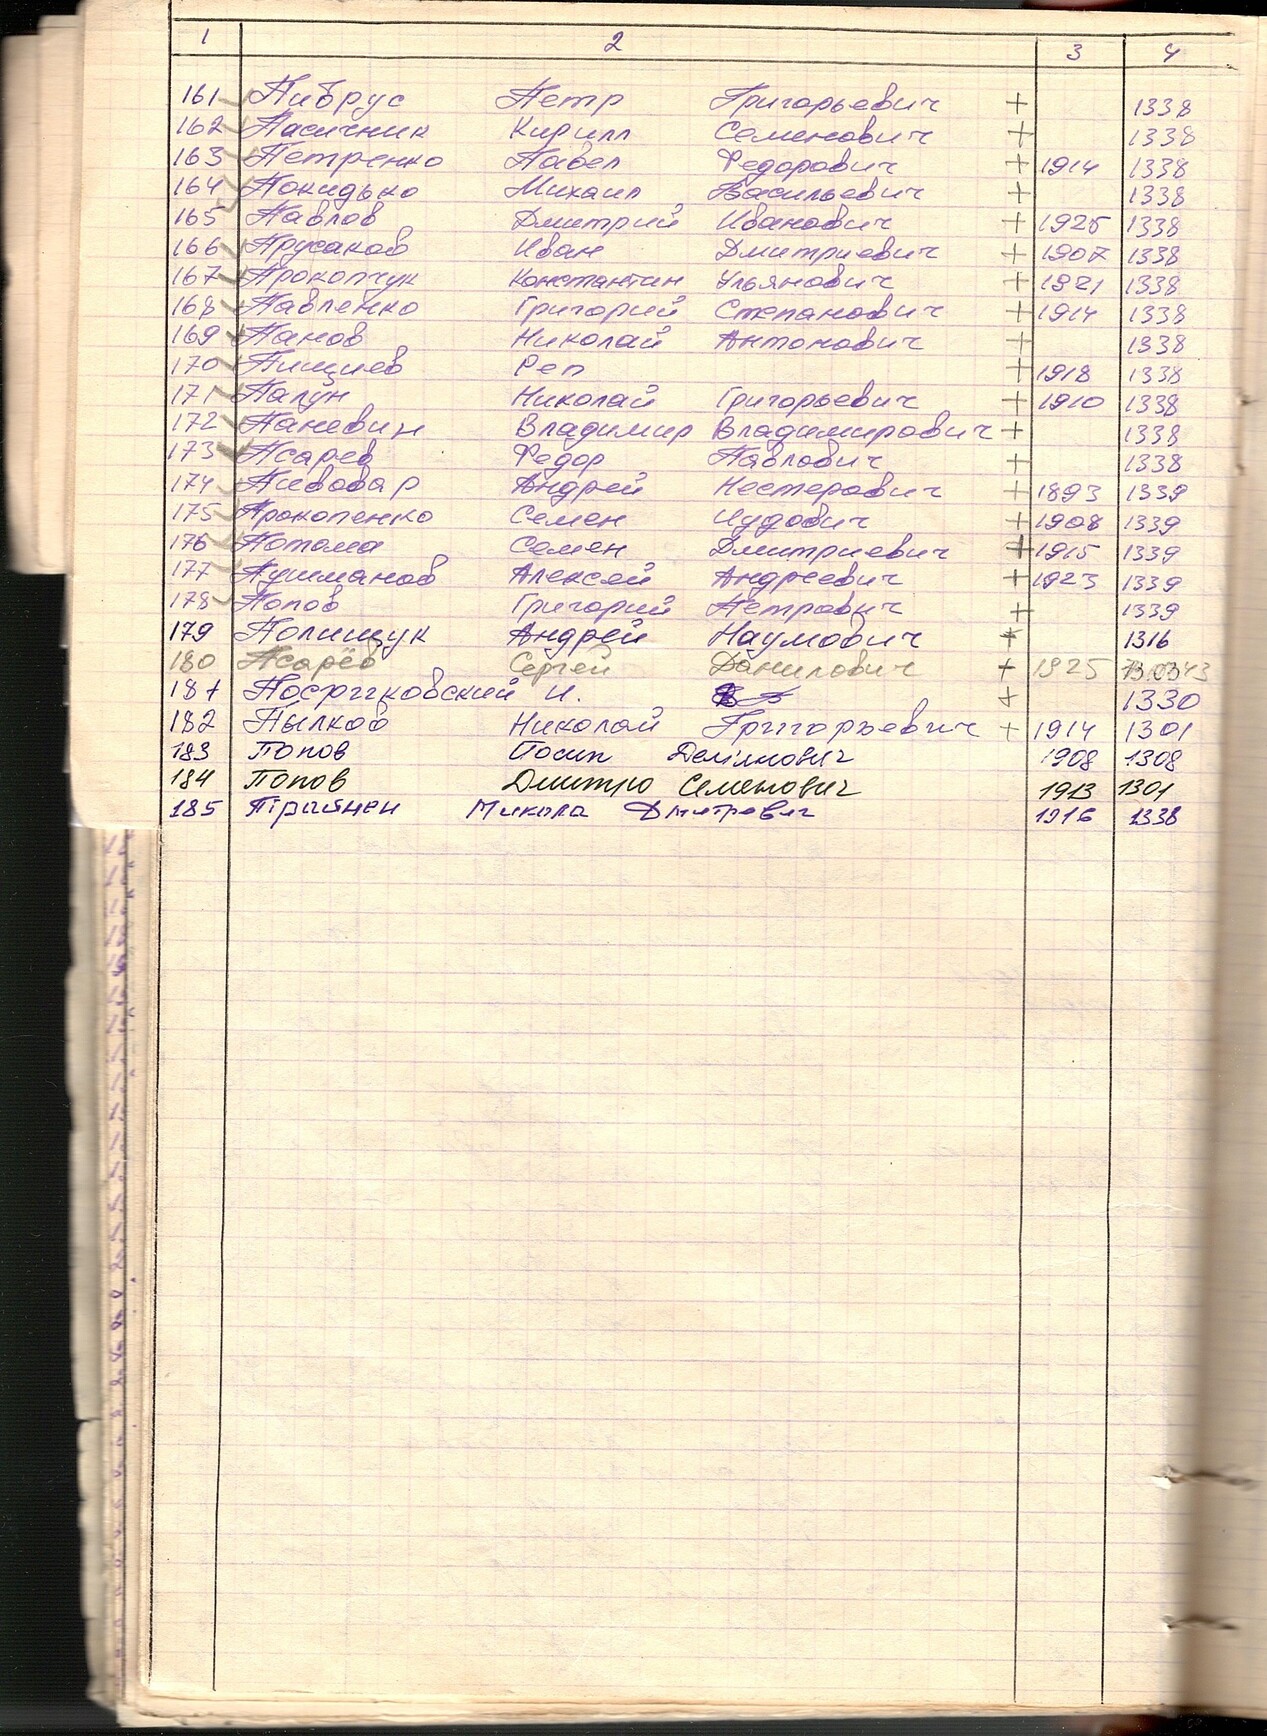 1 2 3 4
161 Пибрус Петр Григорьевич + 1338
162 Пасичник Кирилл Семенович + 1338
163 Петренко Павел Федорович + 1914 1338
164 Покидько Михаил Васильевич + 1338
165 Павлов Дмитрий Иванович + 1925 1338
166 Прусаков Иван Дмитриевич + 1907 1338
167 Прокопчук Константин Ульянович + 1921 1338
168 Павленко Григорий Степанович + 1914 1338
169 Панов Николай Антонович + 1338
170 Пищиев Реп + 1918 1338
171 Палун Николай Григорьевич + 1910 1338
172 Паневин Владимир Владимирович + 1338
173 Псарев Федор Павлович + 1338
174 Пивовар Андрей Нестерович + 1893 1339
175 Прокопенко Семен Иудович + 1908 1339
176 Потома Семен Дмитриевич + 1915 1339
177 Пушманов Алексей Андреевич + 1923 1339
178 Попов Григорий Петрович + 1339
179 Полищук Андрей Наумович + 1316
180 Псарёв Сергей Данилович + 1925
181 И. + 1330
182 Пылков Николай Григорьевич + 1914 1301
183 Попов Йосип 1908 1308
184 Попов Дмитро Семенович 1913 1301
185 Микола Дмитрович 1916 1338